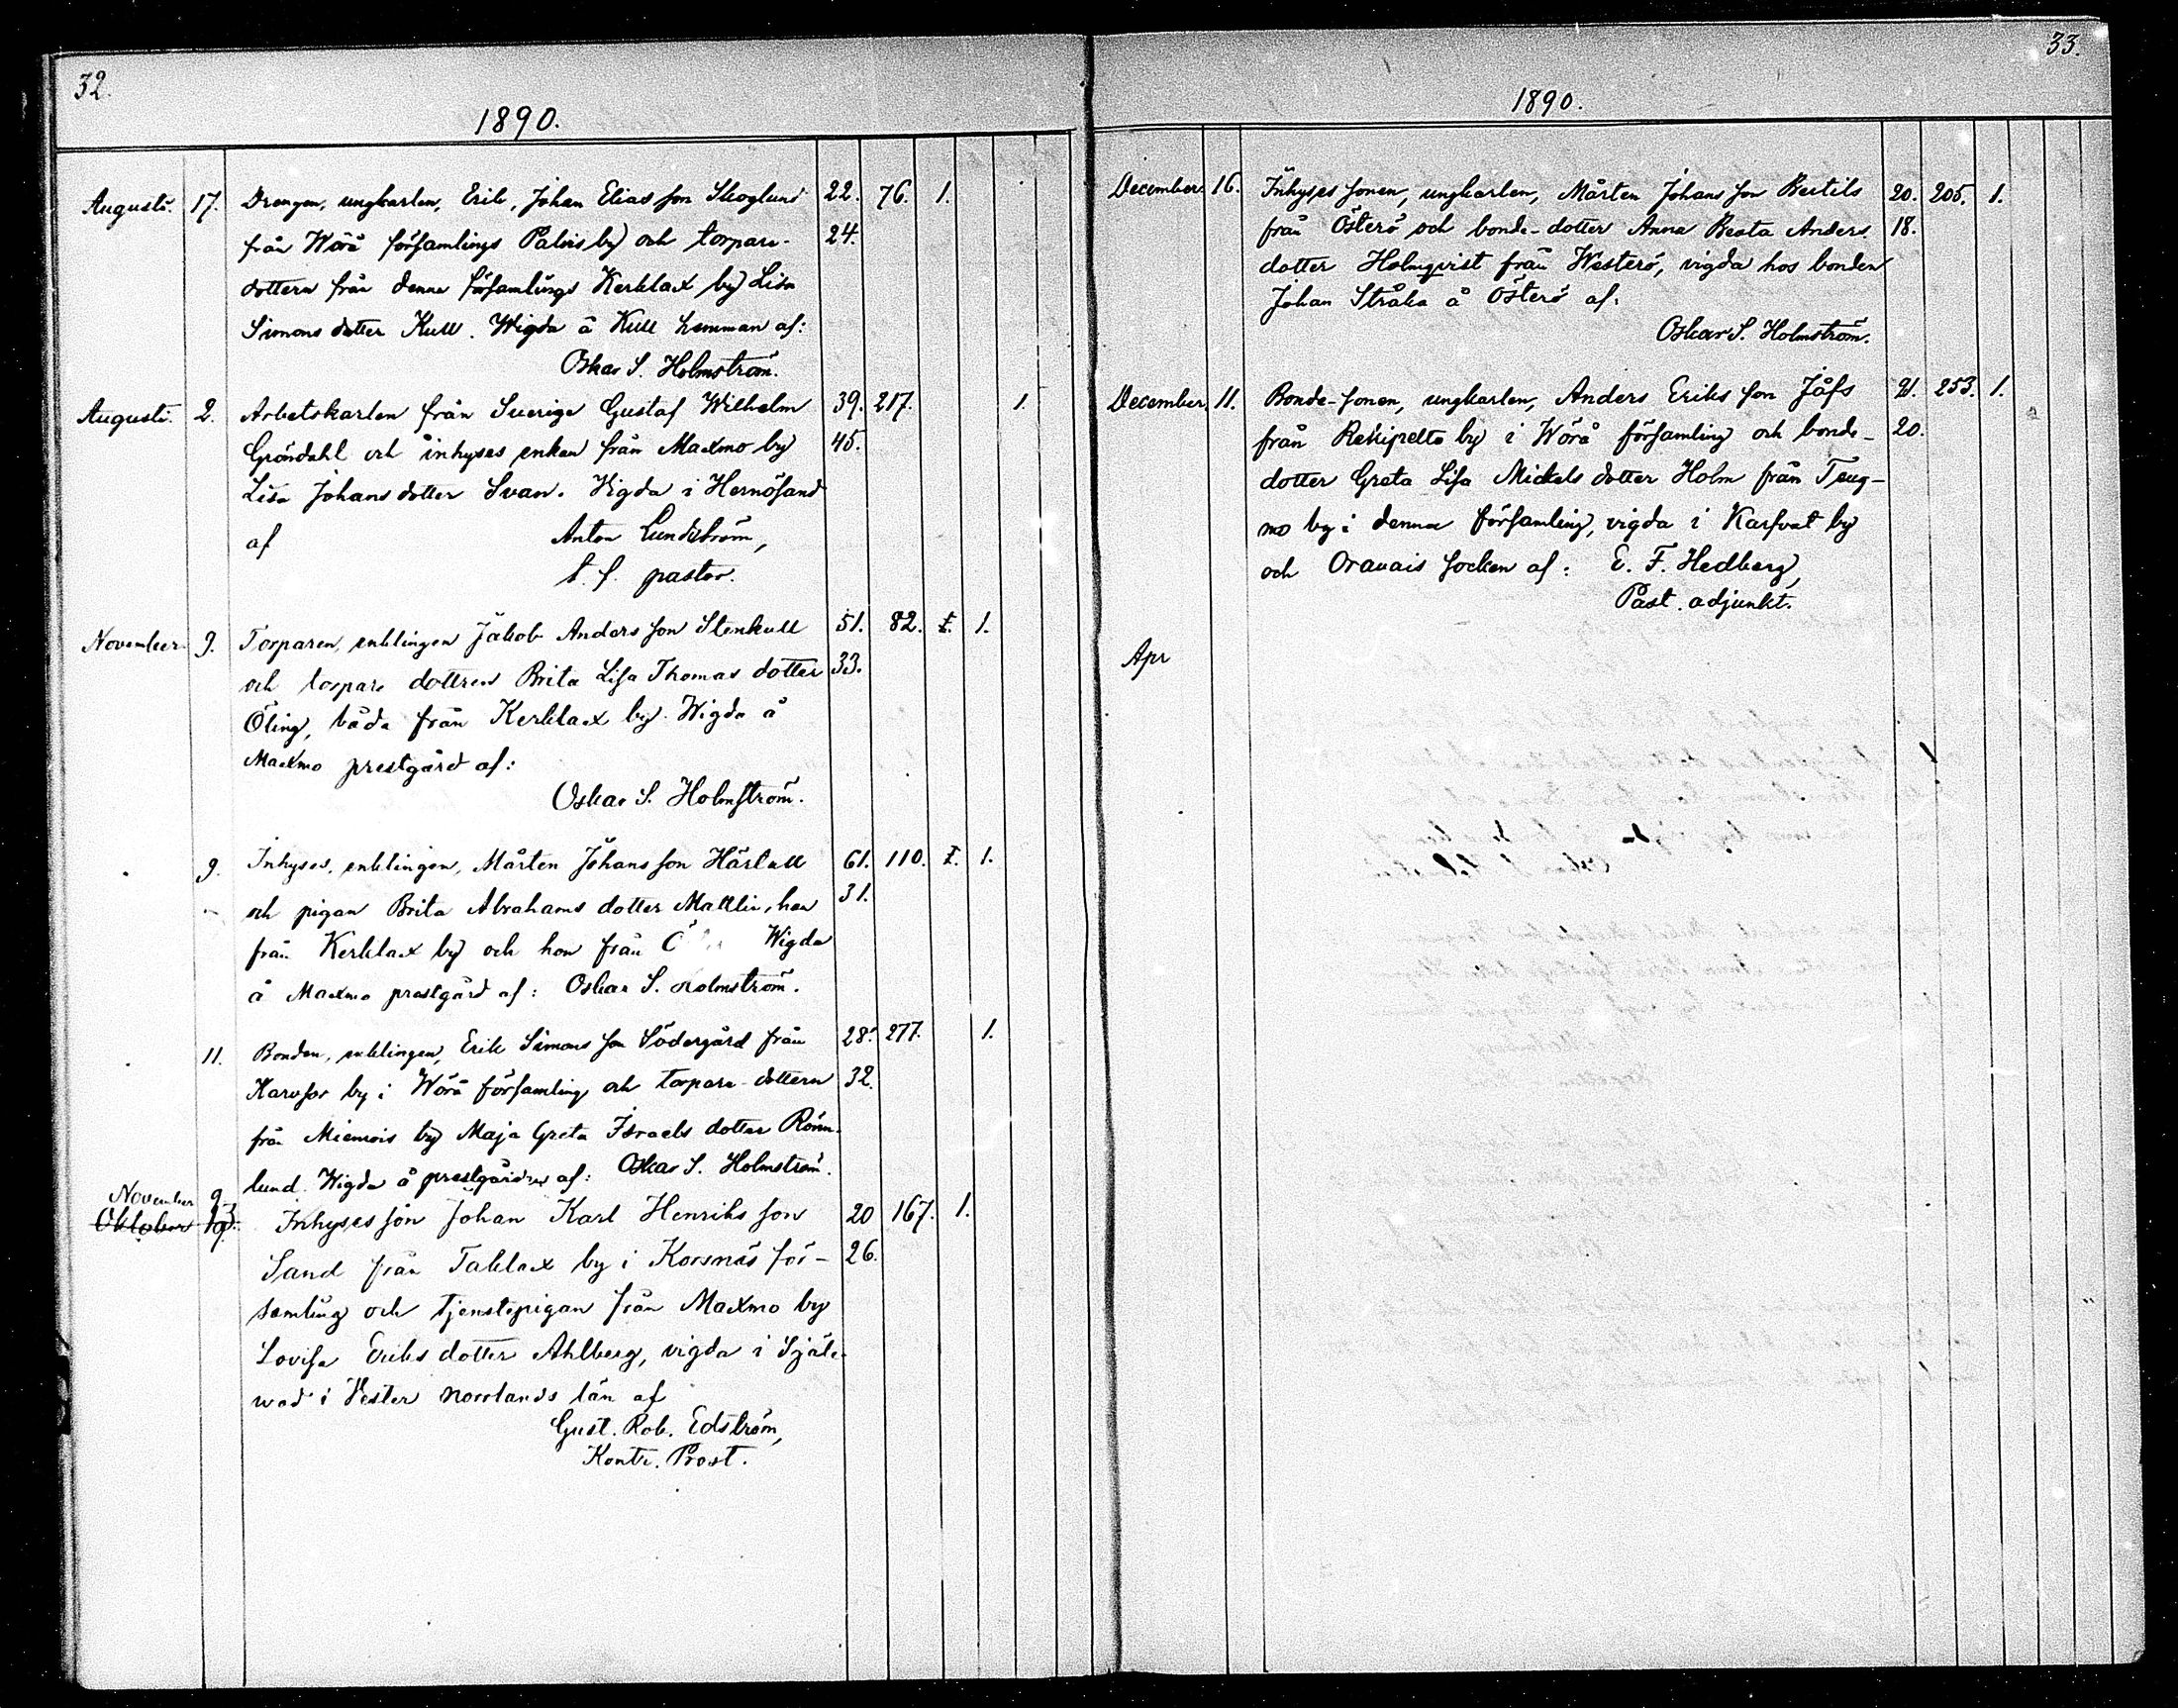 32.
1890.
Augusti. 17. Drengen, ungkarlen, Erik, Johan Elias son Skoglund 22. 76. 1.
från Wörå församlings Palvis by och torpare- 24.
dottern från denna församlings Kerklax by Lisa
Simons dotter Kull. Wigda å Kull hemman af:
Oskar S. Holmström.
Augusti. 2. Arbetskarlen från Sverige Gustaf Wilhelm 39. 217. 1.
Gröndahl och inhyses enkan från Maxmo by 45.
Lisa Johans dotter Svan. Vigda i Hernösand
af Anton Lundström,
t. f. pastor.
November. 9. Torparen, enklingen Jakob Anders son Stenkull 51. 82. 1. 1.
och torpare dottren Brita Lisa Thomas dotter 33.
Öling, båda från Kerklax by. Wigda å
Maxmo prestgård af:
Oskar S. Holmström.
9. Inhyses, enklingen, Mårten Johans son Härkull 61. 110. 1. 1.
och pigan Brita Abrahams dotter Mattlin, han 31.
från Kerklax by och hon från Wigda
å Maxmo prestgård af: Oskar S. Holmström.
11. Bonden, enklingen, Erik Simons son Södergård från 28. 277. 1.
Karvsor by i Wörå församling och torpare-dottern 32.
från Miemois by Maja Greta Israels dotter Rönn-
lund. Wigda å prestgården af: Oskar S. Holmström.
November 9.
Oktober 19. Inhyses son Johan Karl Henriks son 20 167. 1.
Sand från Taklax by i Korsnäs för- 26.
samling och tjenstepigan från Maxmo by
Lovisa Eriks dotter Ahlberg, vigda i Själe-
wad i Vester Norrlands län af
Gust. Rob. Edström,
Kontr. Prost.
33.
1890.
December. 16. Inhyses sonen, ungkarlen, Mårten Johans son Bertils 20. 205. 1.
från Österö och bonde-dotter Anna Beata Anders 18.
dotter Holmqvist från Westerö, vigda hos bonden
Johan Stråka å Österö af:
Oskar S. Holmström.
December. 11. Bonde-sonen, ungkarlen, Anders Eriks son Jåfs 21. 253. 1.
från Rekipelto by i Wörå församling och bonde- 20.
dotter Greta Lisa Mickels dotter Holm från Teug-
mo by i denna församling, vigda i Karfvat by
och Oravais socken af: E. F. Hedberg,
Past. adjunkt.
Apr